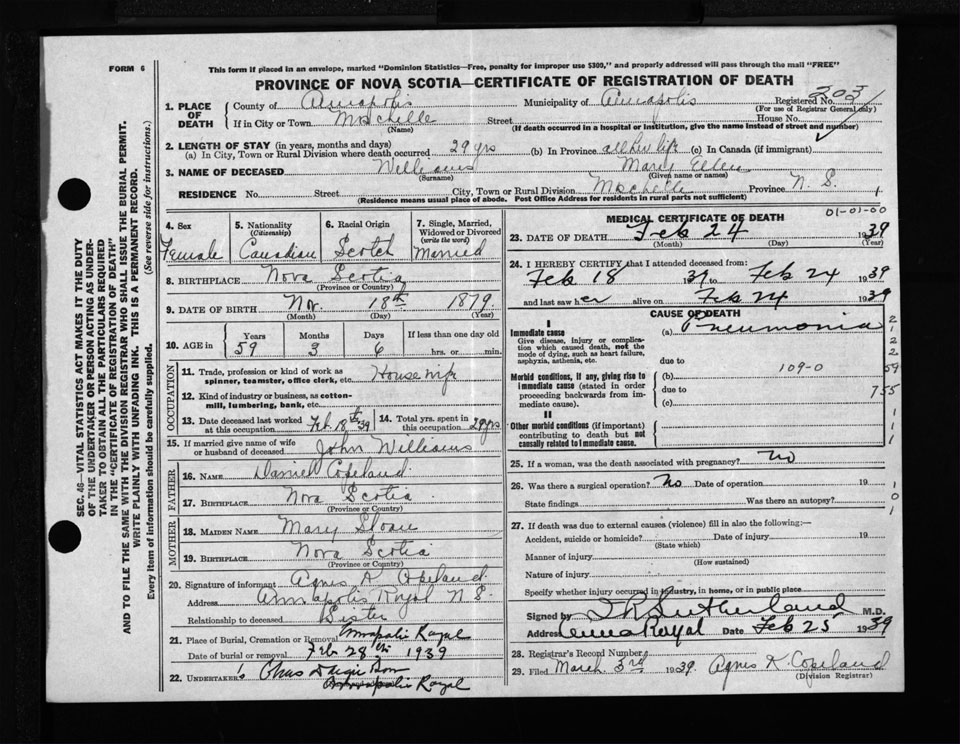 FORM 6
This form if placed in an envelope, marked "Dominion Statistics—Free, penalty for improper use $300," and properly addressed will pass through the mail "FREE"
PROVINCE OF NOVA SCOTIA—CERTIFICATE OF REGISTRATION OF DEATH
1. PLACE OF DEATH County of Annapolis Municipality of Annapolis Registered No. 203
(For use of Registrar General only)
If in City or Town Moschelle Street House No.
(Name) (If death occurred in a hospital or institution, give the name instead of street and number)
2. LENGTH OF STAY (in years, months and days)
(a) In City, Town or Rural Division where death occurred 29 yrs (b) In Province all her life (c) In Canada (if immigrant)
3. NAME OF DECEASED Williams Mary Ellen
(Surname) (Given name or names)
RESIDENCE No. Street City, Town or Rural Division Moschelle Province N. S.
(Residence means usual place of abode. Post Office Address for residents in rural parts not sufficient)
4. Sex Female
5. Nationality (Citizenship) Canadian
6. Racial Origin Scotch
7. Single, Married, Widowed or Divorced (write the word) Married
8. BIRTHPLACE Nova Scotia
(Province or Country)
9. DATE OF BIRTH Nov. 18th 1879
(Month) (Day) (Year)
10. AGE in Years Months Days If less than one day old
59 3 6 hrs. or min.
OCCUPATION
11. Trade, profession or kind of work as spinner, teamster, office clerk, etc. Housewife
12. Kind of industry or business, as cotton-mill, lumbering, bank, etc.
13. Date deceased last worked at this occupation Feb. 18th 39
14. Total yrs. spent in this occupation 29 yrs
15. If married give name of wife or husband of deceased John Williams
FATHER
16. NAME Daniel Copeland
17. BIRTHPLACE Nova Scotia
(Province or Country)
MOTHER
18. MAIDEN NAME Mary Sloan
19. BIRTHPLACE Nova Scotia
(Province or Country)
20. Signature of informant Agnes A. Copeland
Address Annapolis Royal N S.
Relationship to deceased Sister
21. Place of Burial, Cremation or Removal Annapolis Royal
Date of burial or removal Feb 28th 1939
22. UNDERTAKER'S
Annapolis Royal
01-01-00
MEDICAL CERTIFICATE OF DEATH
23. DATE OF DEATH Feb 24 1939
(Month) (Day) (Year)
24. I HEREBY CERTIFY that I attended deceased from:
Feb 18 39 to Feb 24 1939
and last saw her alive on Feb 24 1939
CAUSE OF DEATH
I
Immediate cause (a) Pneumonia
Give disease, injury or complication which caused death, not the mode of dying, such as heart failure, asphyxia, asthenia, etc.
due to
109-0
Morbid conditions, if any, giving rise to immediate cause (stated in order proceeding backwards from immediate cause). (b)
due to
(c)
II
Other morbid conditions (if important) contributing to death but not causally related to immediate cause.
2
1
2
2
59
755
1
1
1
25. If a woman, was the death associated with pregnancy? no
26. Was there a surgical operation? No Date of operation 19
State findings Was there an autopsy?
1
0
1
27. If death was due to external causes (violence) fill in also the following:—
Accident, suicide or homicide? Date of injury 19
(State which)
Manner of injury
(How sustained)
Nature of injury
Specify whether injury occurred in industry, in home, or in public place
Signed by Sutherland M.D.
Address Anna Royal Date Feb 25 1939
28. Registrar's Record Number
29. Filed March 3rd 1939. Agnes K. Copeland
(Division Registrar)
SEC. 46—VITAL STATISTICS ACT MAKES IT THE DUTY
OF THE UNDERTAKER OR PERSON ACTING AS UNDER-
TAKER TO OBTAIN ALL THE PARTICULARS REQUIRED
IN THE "CERTIFICATE OF REGISTRATION OF DEATH"
AND TO FILE THE SAME WITH THE DIVISION REGISTRAR WHO SHALL ISSUE THE BURIAL PERMIT.
WRITE PLAINLY WITH UNFADING INK. THIS IS A PERMANENT RECORD.
Every item of information should be carefully supplied. (See reverse side for instructions.)